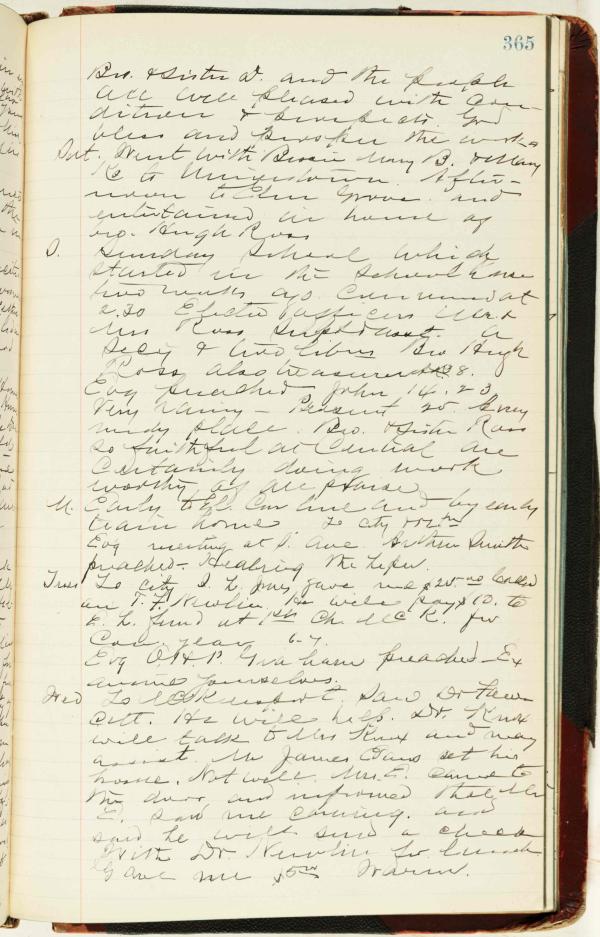 365
Bro. & Sister D. and the people
all well pleased with Con-
dition & prospects. God
bless and prosper the work
Sat. Went with Bessie Mary B. & Mary
K. to After-
noon to Elm Grove and
entertained in home of
Bro. Hugh Ross
S. Sunday School which
started in the School house
two weeks ago. Convened at
2.30 Elected officers Mrs
Mrs Ross Supt & asst. a
Secy & two librns Bro Hugh
Ross also treasurer 38.
Evg preached John 14.23
Very rainy - Present 25. Every
needy place. Bro. & Sister Ross
so faithful at Central are
Certainly doing work
worthy of all praise
M. Early to Car line and by early
train home To city
Evg meeting at S. Ave Arthur Smith
preached - Healing the leper.
Tues To city S. L. Jones gave me $25.00 Called
on T. F. Newlin. He will pay $10. to
E. L. fund at 1st Ch. McK. for
Con. year 6-7.
Evg O. H. P. Graham preached - Ex
amine yourselves.
Wed To McKeesport. Saw Dr
He will help. Dr. Knox
will talk to Mrs Knox and may
assist. Mr James Evans at his
home. Not well. Mrs. E. came to
the door and informed that Mr
E. saw me coming and
said he will send a check
With Dr. Newlin for lunch
Gave me $5.00 Warm.